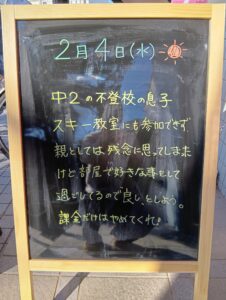 2月4日(水)
中2の不登校の息子
スキー教室にも参加できず
親としては残念に思ってしまった
けど部屋で好きな事をして
過ごしてるので良しとしよう。
課金だけはやめてくれ♪